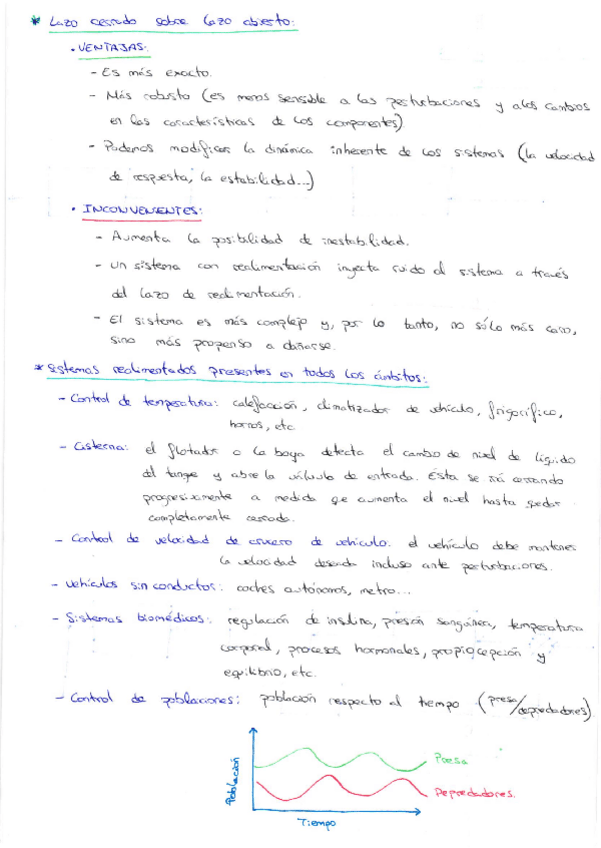 * Lazo cerrado sobre lazo abierto:
• VENTAJAS:
- Es más exacto.
- Más robusto (es menos sensible a las perturbaciones y a los cambios
en las características de los componentes)
- Podemos modificar la dinámica inherente de los sistemas (la velocidad
de respuesta, la estabilidad...)
• INCONVENIENTES:
- Aumenta la posibilidad de inestabilidad.
- Un sistema con realimentación inyecta ruido al sistema a través
del lazo de realimentación.
- El sistema es más complejo y, por lo tanto, no sólo más caro,
sino más propenso a dañarse.
* Sistemas realimentados presentes en todos los ámbitos:
- Control de temperatura: calefacción, climatizador de vehículo, frigorífico,
hornos, etc.
- Cisterna: el flotador o la boya detecta el cambio de nivel de líquido
del tanque y abre la válvula de entrada. Ésta se irá cerrando
progresivamente a medida que aumenta el nivel hasta quedar
completamente cerrada.
- Control de velocidad de crucero de vehículo: el vehículo debe mantener
la velocidad deseada incluso ante perturbaciones.
- Vehículos sin conductor: coches autónomos, metro...
- Sistemas biomédicos: regulación de insulina, presión sanguínea, temperatura
corporal, procesos hormonales, propiocepción y
equilibrio, etc.
- Control de poblaciones: población respecto al tiempo (presa/depredadores).
Presa
Población
Depredadores.
Tiempo